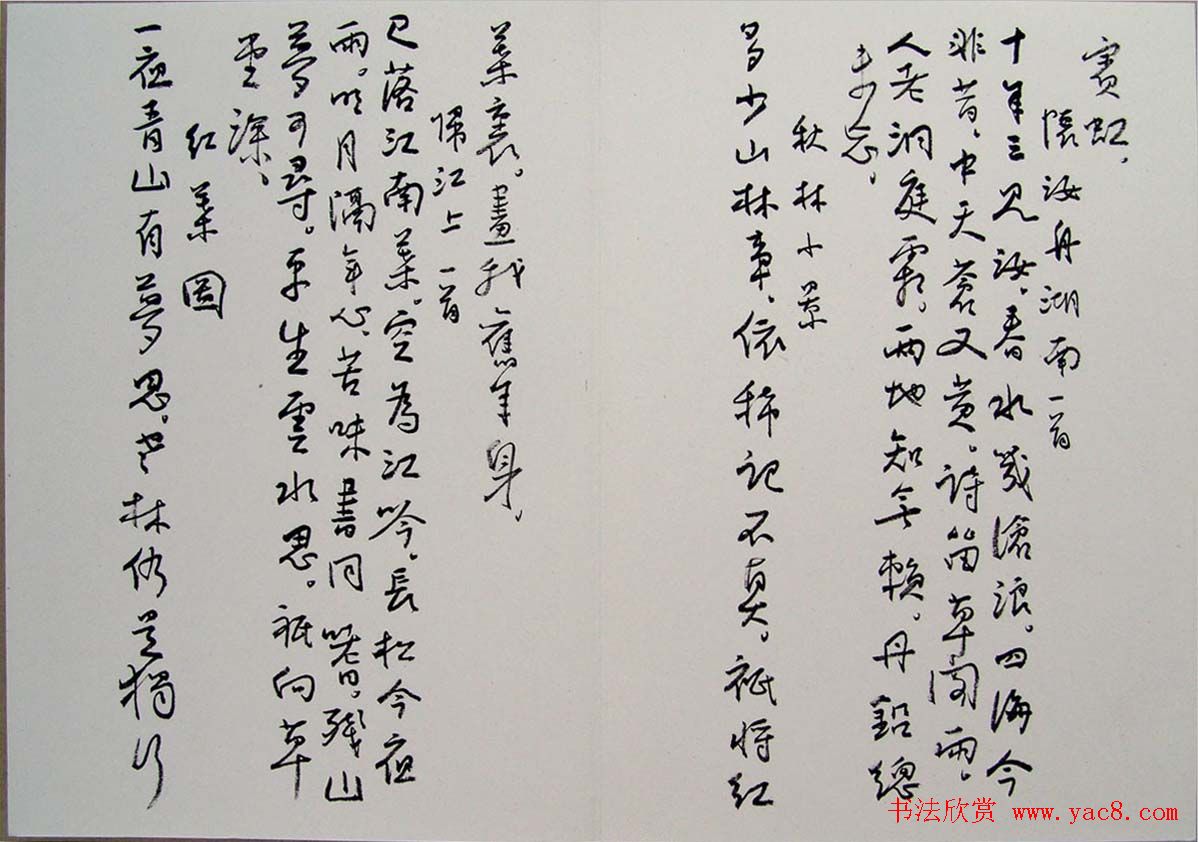 賓虹、
懷汝舟湖南一首
十年三見汝。春水幾滄浪。四海今
非昔、中天蒼又黃。詩笛草閣雨、
人老洞庭霜。兩地知無賴。丹鉛總
未忘、
秋林小景
多少山林事。依稀記不真。祇將紅
葉裏。畫我舊年身、
歸江上一首
已落江南葉。空為江吟。長松今夜
雨。明月隔年心。苦味書同嚐。殘山
夢可尋。平生雲水思。祇向草
堂深、
紅葉圖
一夜青山有夢思。林仍是獨行
书法欣赏 www.yac8.com